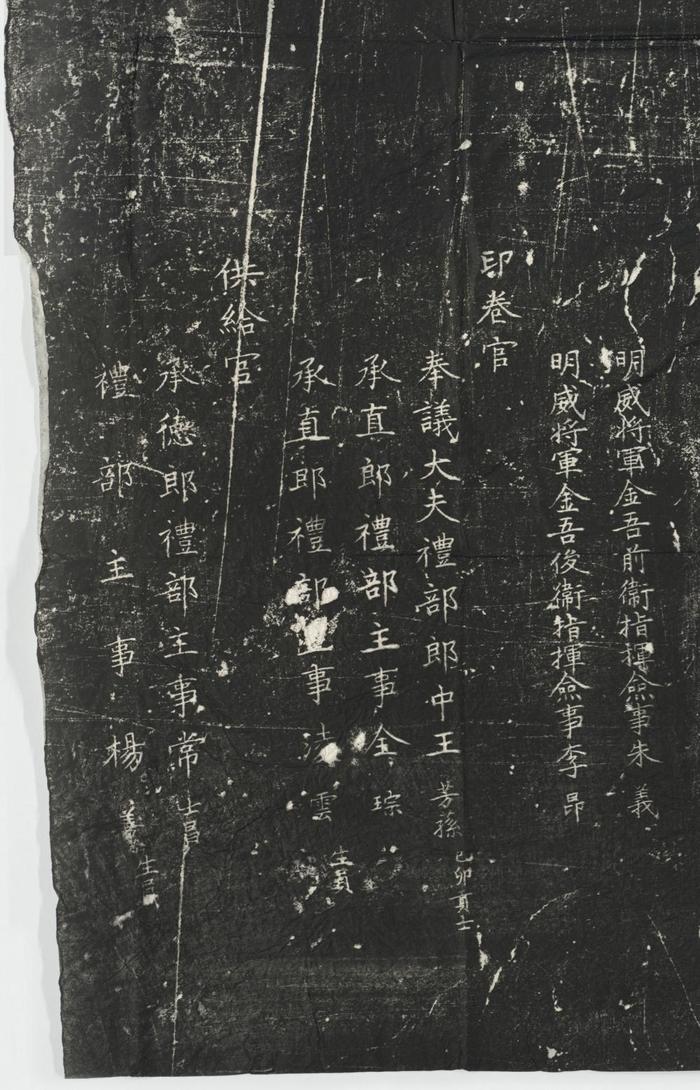 明威將軍金吾前衞指揮僉事朱義
明威將軍金吾後衞指揮僉事李昂
印卷官
奉議大夫禮部郎中王芳孫己卯貢士
承直郎禮部主事金琮
承直郎禮部主事凌雲生員
供給官
承德郎禮部主事常士昌
禮部主事楊 生員